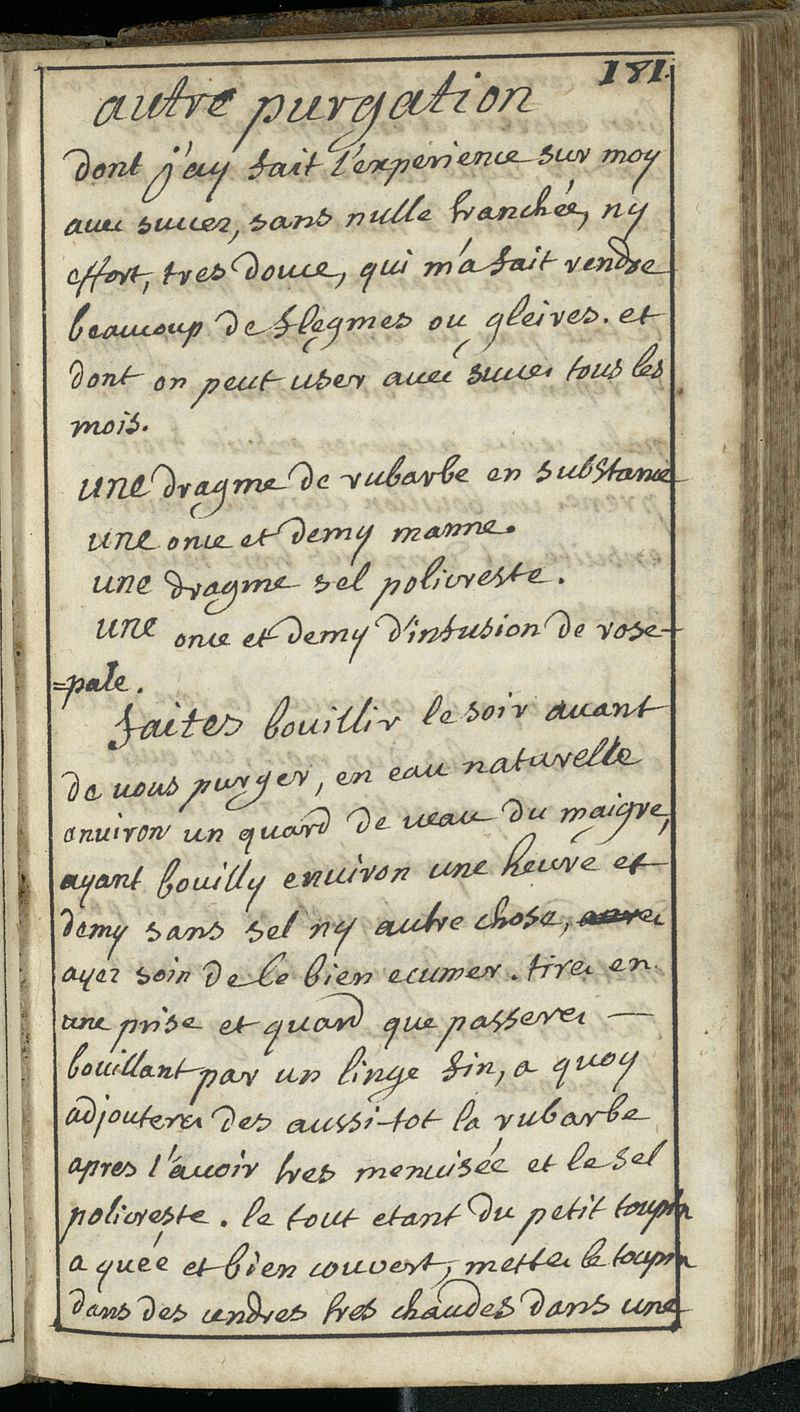 181.
autre purgation
dont j'ay fait l'experience sur moy
avec succez, sans nulle tranchée, ny
effort, tres douce, qui m'a fait rendre
beaucoup de flegmes ou gleires. et
dont on peut user avec succez tous les
mois.
une dragme de rubarbe en substance
une once et demy manne.
une dragme sel policreste.
une once et demy d'infusion de rose-
=pale.
faites bouillir le soir avant
de vous purger, en eau naturelle
environ un quard de veau du maigre,
ayant bouilly environ une heure et
demy sans sel ny autre chose,
ayez soin de le bien ecumer. tirez en
une prise et quard que passerez —
bouillant par un linge fin, a quoy
adjouterez des aussi-tot la rubarbe
apres l'avoir tres menuisée et le sel
policreste. le tout etant du petit toupin
a queé et bien couvert, mettez le toupin
dans des cendres tres chaudes dans une